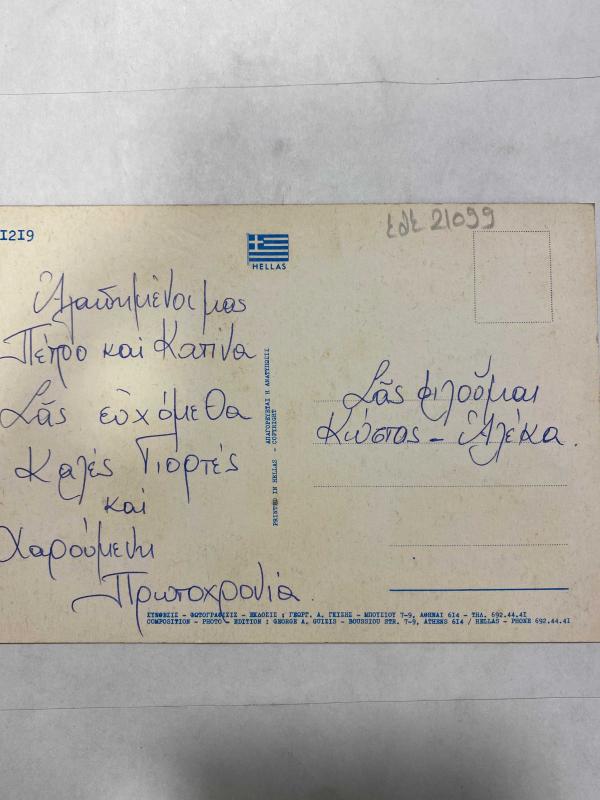 I2I9
HELLAS
εδε 21099
Ἀγαπημένοι μας
Πέτρο και Κατίνα
Σᾶς εὐχόμεθα
Καλές Γιορτές
και
Χαρούμενη
Πρωτοχρονιά.
ΑΠΑΓΟΡΕΥΕΤΑΙ Η ΑΝΑΤΥΠΩΣΙΣ
PRINTED IN HELLAS - COPYRIGHT
Σᾶς φιλοῦμαι
Κώστας - Ἀλέκα.
ΣΥΝΘΕΣΙΣ - ΦΩΤΟΓΡΑΦΗΣΙΣ - ΕΚΔΟΣΙΣ : ΓΕΩΡΓ. Α. ΓΚΙΖΗΣ - ΜΠΟΥΣΙΟΥ 7-9, ΑΘΗΝΑΙ 6I4 - ΤΗΛ. 692.44.4I
COMPOSITION - PHOTO - EDITION : GEORGE A. GUIZIS - BOUSSIOU STR. 7-9, ATHENS 6I4 / HELLAS - PHONE 692.44.4I